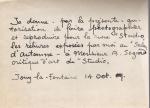 Je donne par la présente au-
torisation de faire photographier
et reproduire pour la revue "Studio"
les reliures exposées par moi au "Salon
d'Automne" à Monsieur A. Segard
critique d'art de "Studio".
Jouy-la-Fontaine 14 Oct.